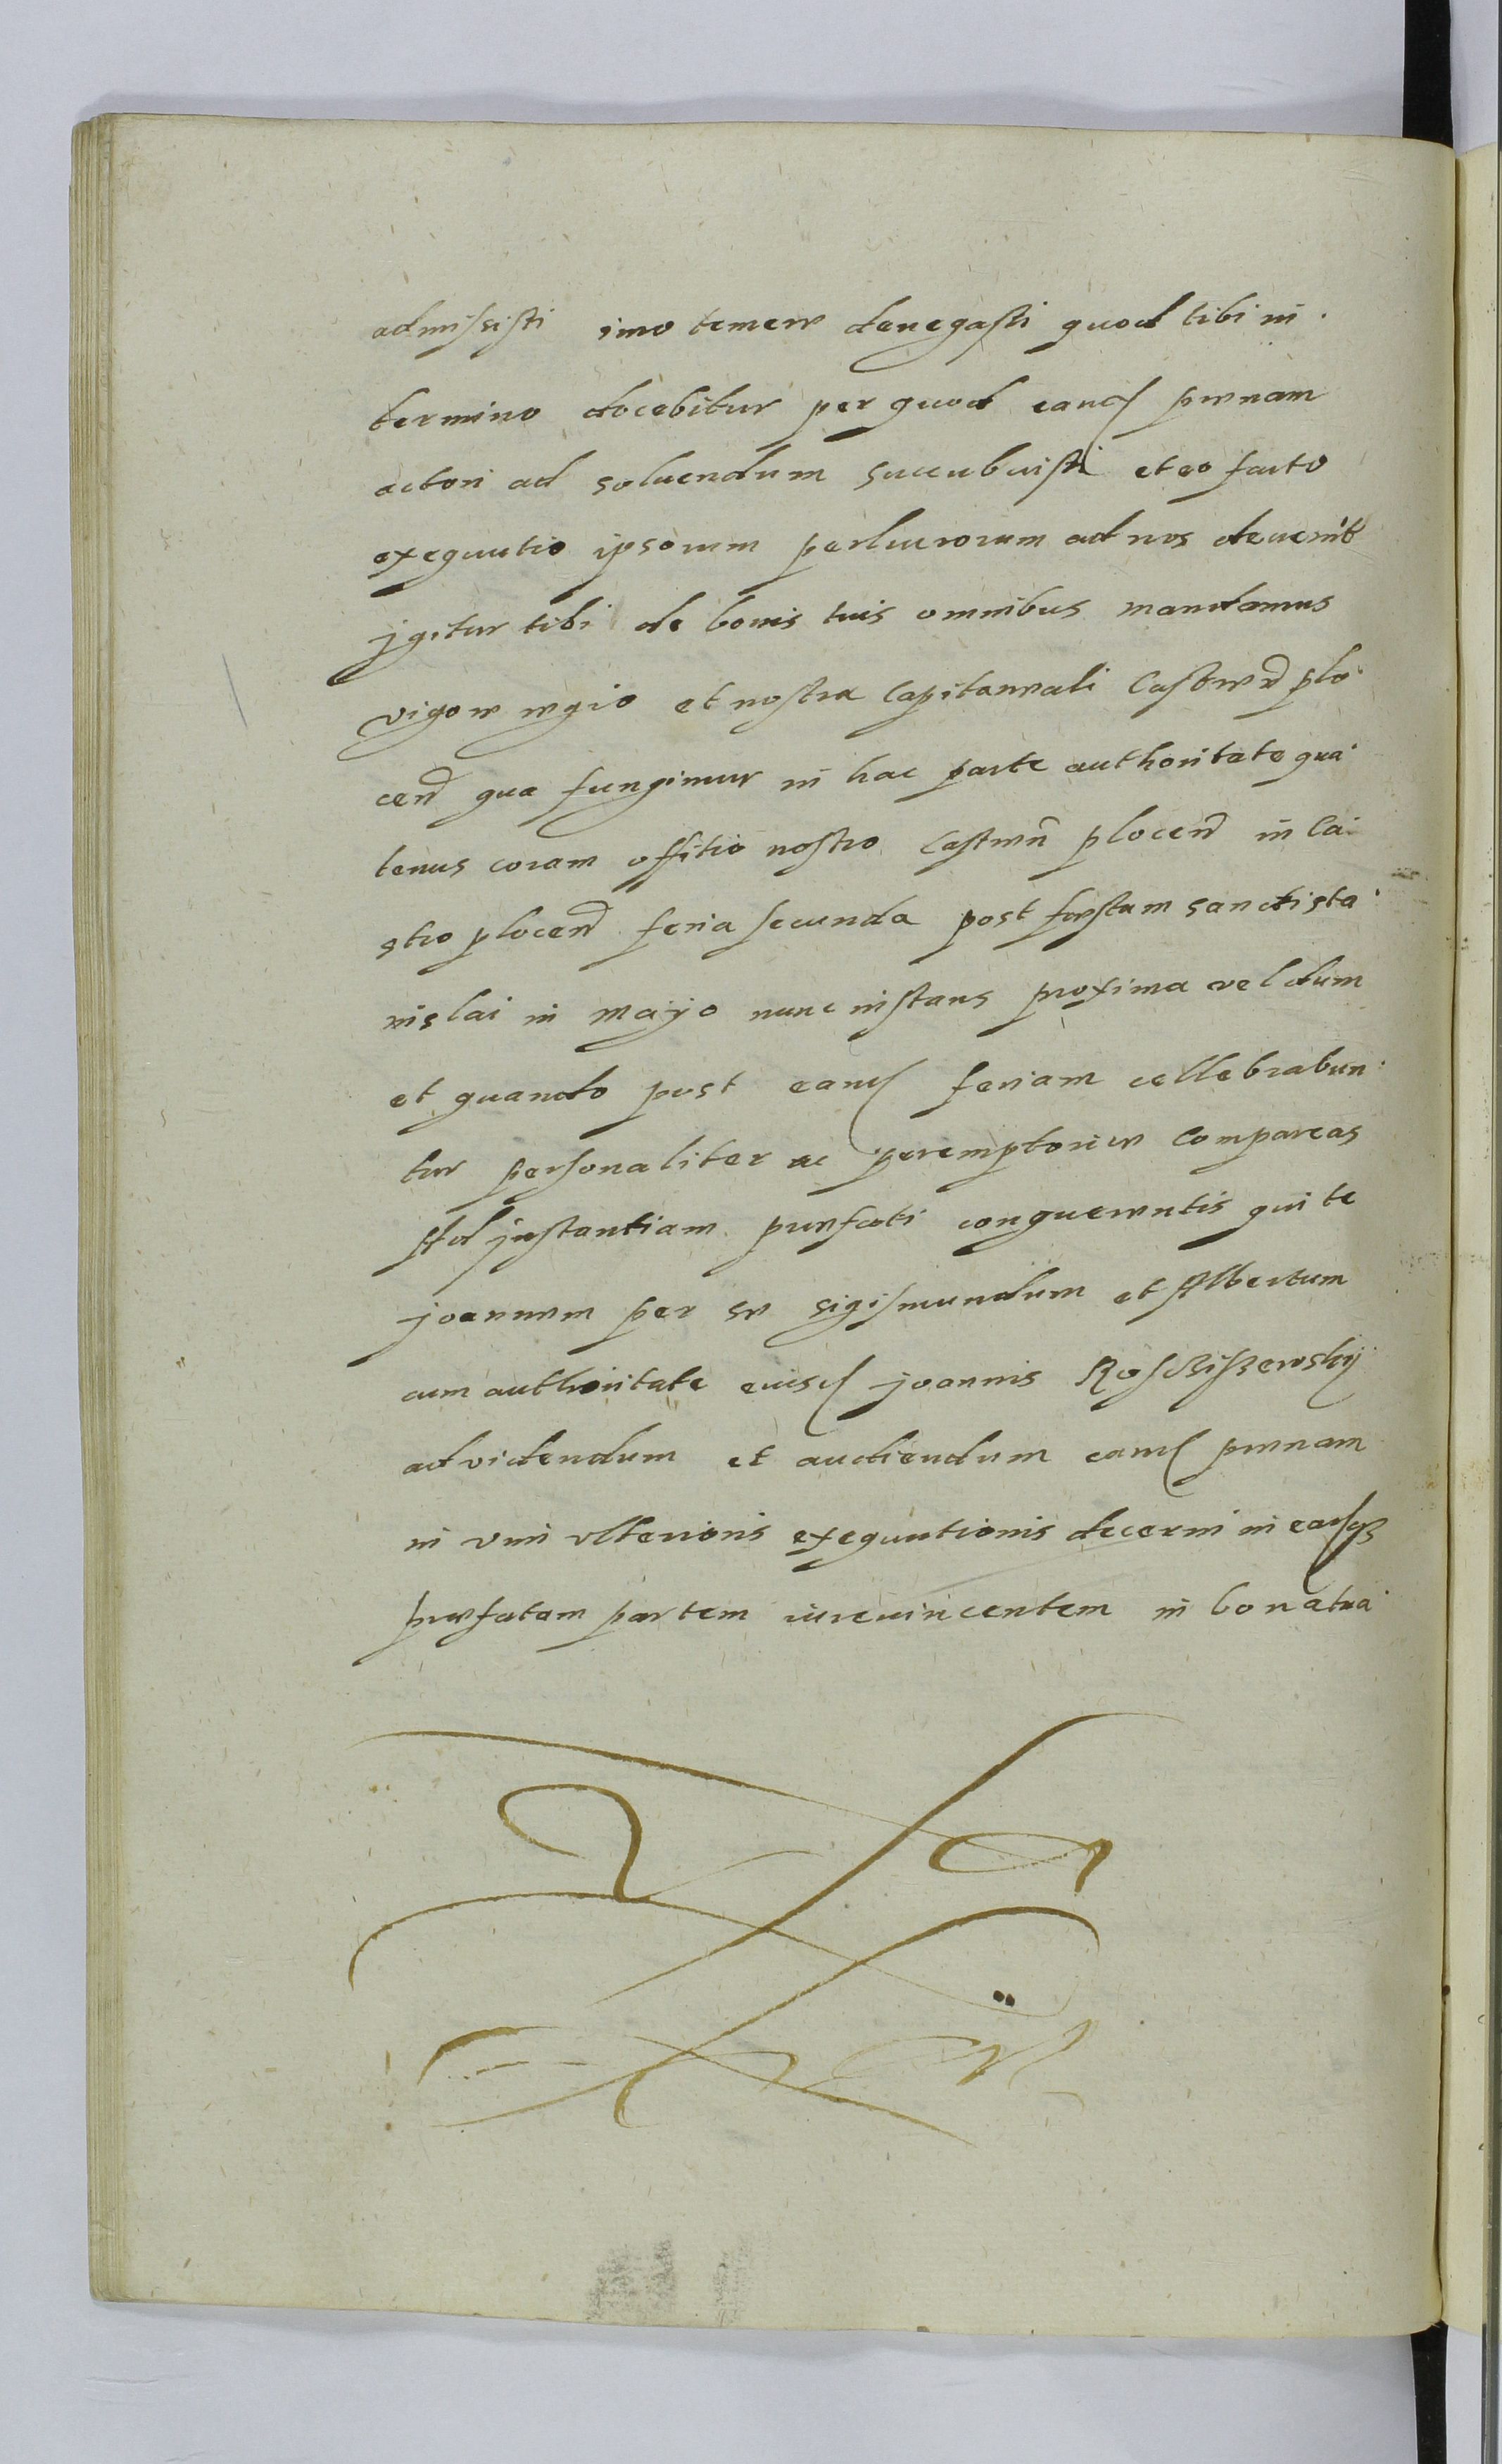 admissisti imo temere denegasti quod tibi in
termino docebitur per quod eand poenam
actori ad soluendum succubuisti et eo facto
exequutio ipsorum perlucrorum ad nos deuenit
jgitur tibi de bonis tuis omnibus mandamus
vigore regio et nostra Capitaneali Castren plo
cen qua fungimur in hac parte authoritate qua
tenus coram offitio nostro Castren plocen in Ca
stro plocen feria secunda post festum sancti sta
nislai in Majo nunc instans proxima vel dum
et quando post eand feriam cellebrabun
tur personaliter ac peremptorie Compareas
Ad jnstantiam praefati conquerentis qui te
joannem per se sigismundum et Albertum
cum authoritate eiusd joannis Rosczissewskij
ad videndum et audiendum eand poenam
in vim vlterioris exequutionis decerni in eamq
praefatam partem iurevincentem in bona tua